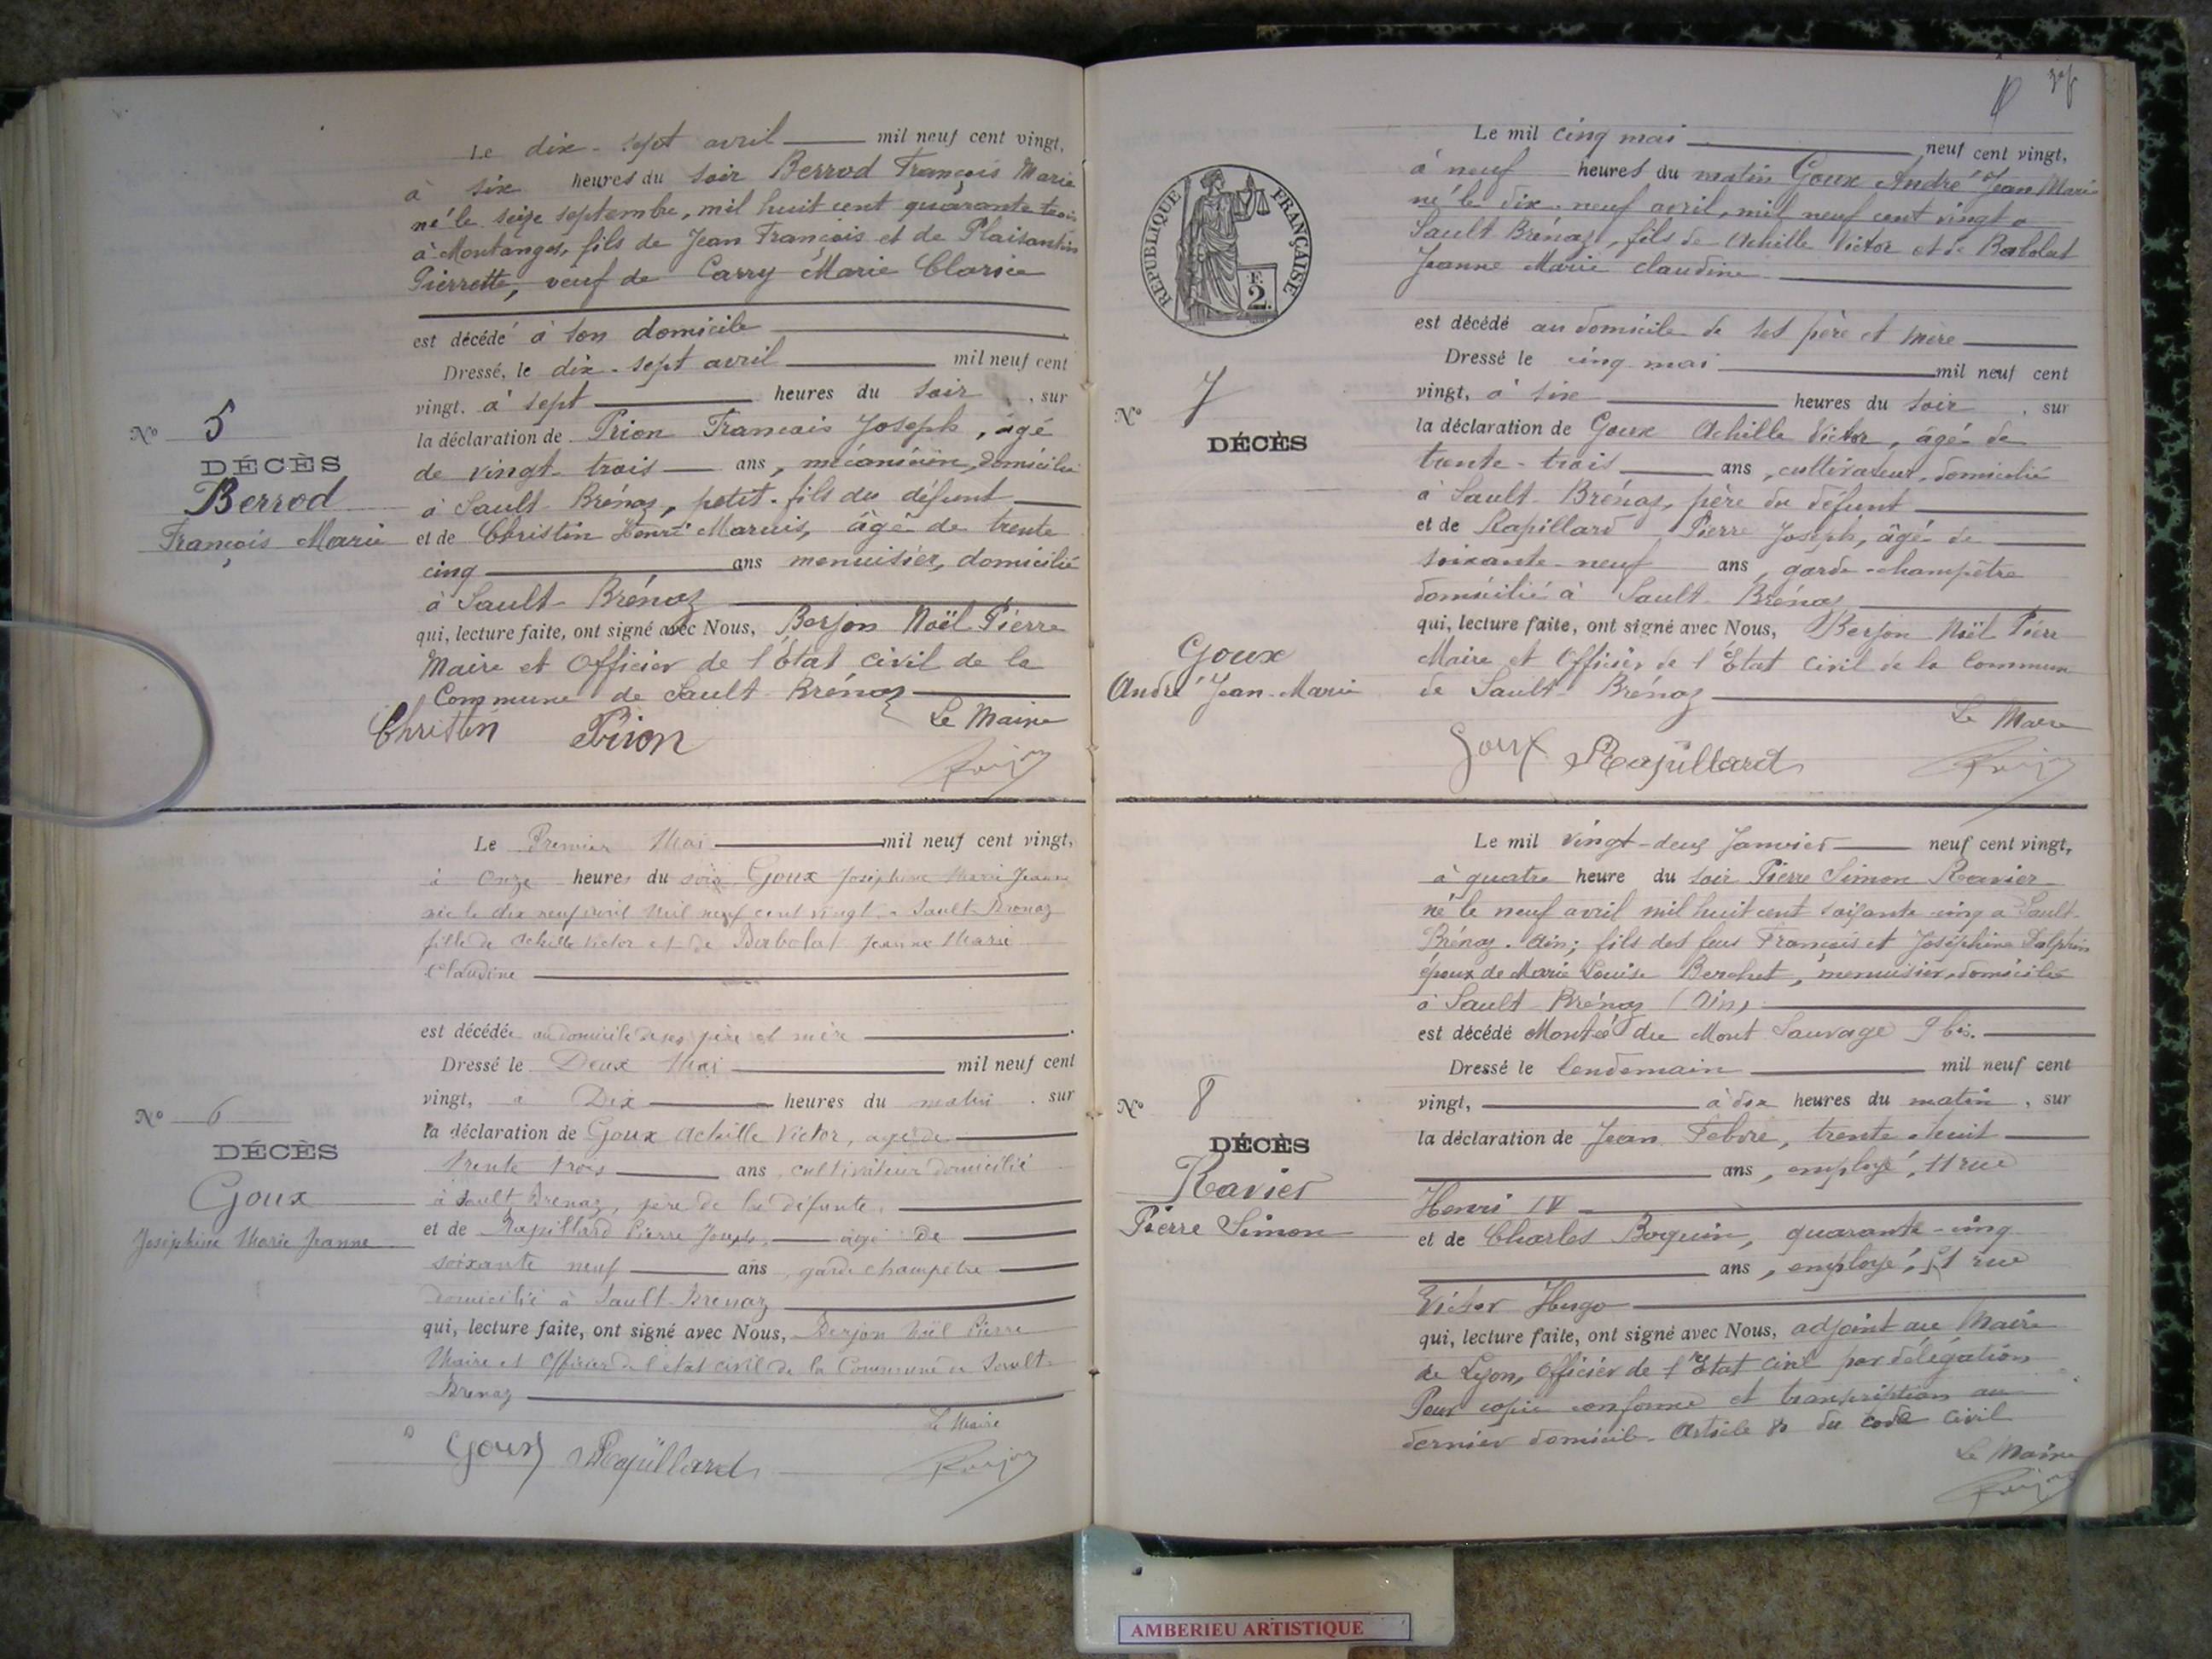 Le dix-sept avril mil neuf cent vingt,
à six heures du soir Berrod François Marie
né le seize septembre, mil huit cent quarante trois
à Montanges, fils de Jean François et de Plaisantin
Pierrette, veuf de Carry Marie Clarice
est décédé à son domicile
Dressé, le dix-sept avril mil neuf cent
vingt, à sept heures du soir, sur
la déclaration de Prion François Joseph, âgé
de vingt-trois ans, mécanicien, domicilié
à Sault-Brénaz, petit-fils du défunt
et de Christin Henri Marius, âgé de trente
cinq ans menuisier, domicilié
à Sault-Brénaz
qui, lecture faite, ont signé avec Nous, Berjon Noël Pierre
Maire et Officier de l'Etat civil de la
Commune de Sault-Brénaz
Le Maire
Christin Prion
Nº 5
DÉCÈS
Berrod
François Marie
Le Premier Mai mil neuf cent vingt,
à Onze heures du soir Goux Joséphine Marie Jeanne
née le dix neuf avril mil neuf cent vingt à Sault-Brenaz
fille de Achille Victor et de Barbolat Jeanne Marie
Claudine
est décédée au domicile de ses père et mère
Dressé le Deux Mai mil neuf cent
vingt, à Dix heures du matin, sur
la déclaration de Goux Achille Victor, agé de
trente trois ans, cultivateur domicilié
à Sault Brenaz, père de la défunte,
et de Rapillard Pierre Joseph, âgé de
soixante neuf ans, garde champêtre
domicilié à Sault-Brenaz
qui, lecture faite, ont signé avec Nous, Berjon Noël Pierre
Maire et Officier de l'état civil de la Commune de Sault-
Brenaz
Le Maire
Goux Rapillard
Nº 6
DÉCÈS
Goux
Joséphine Marie Jeanne
Le mil cinq mai neuf cent vingt,
à neuf heures du matin Goux André Jean Marie
né le dix-neuf avril, mil neuf cent vingt a
Sault Brénaz, fils de Achille Victor et de Babolat
Jeanne Marie Claudine
est décédé au domicile de ses père et mère
Dressé le cinq mai mil neuf cent
vingt, à six heures du soir, sur
la déclaration de Goux Achille Victor, âgé de
trente-trois ans, cultivateur, domicilié
à Sault-Brénaz, père du défunt
et de Rapillard Pierre Joseph, âgé de
soixante-neuf ans, garde-champêtre
domicilié à Sault-Brénaz
qui, lecture faite, ont signé avec Nous, Berjon Noël Pierre
Maire et Officier de l'Etat civil de la Commune
de Sault-Brénaz
Le Maire
Goux Rapillard
RÉPUBLIQUE FRANÇAISE
F. 2
Nº 7
DÉCÈS
Goux
André Jean-Marie
Le mil vingt-deux Janvier neuf cent vingt,
à quatre heure du soir Pierre Simon Ravier
né le neuf avril mil huit cent soixante cinq a Sault-
Brénaz. Ain; fils des feus François et Joséphine Dalphin
époux de Marie Louise Berchet, menuisier, domicilié
à Sault-Brénaz (Ain)
est décédé Montée du Mont Sauvage 9 bis.
Dressé le lendemain mil neuf cent
vingt, à dix heures du matin, sur
la déclaration de Jean Febvre, trente-huit
ans, employé, 11 rue
Henri IV
et de Charles Boquin, quarante-cinq
ans, employé, 51 rue
Victor Hugo
qui, lecture faite, ont signé avec Nous, adjoint au Maire
de Lyon, Officier de l'Etat Civil par délégation
Pour copie conforme et transcription au
dernier domicile. Article 80 du code civil
Le Maire
Nº 8
DÉCÈS
Ravier
Pierre Simon
AMBERIEU ARTISTIQUE